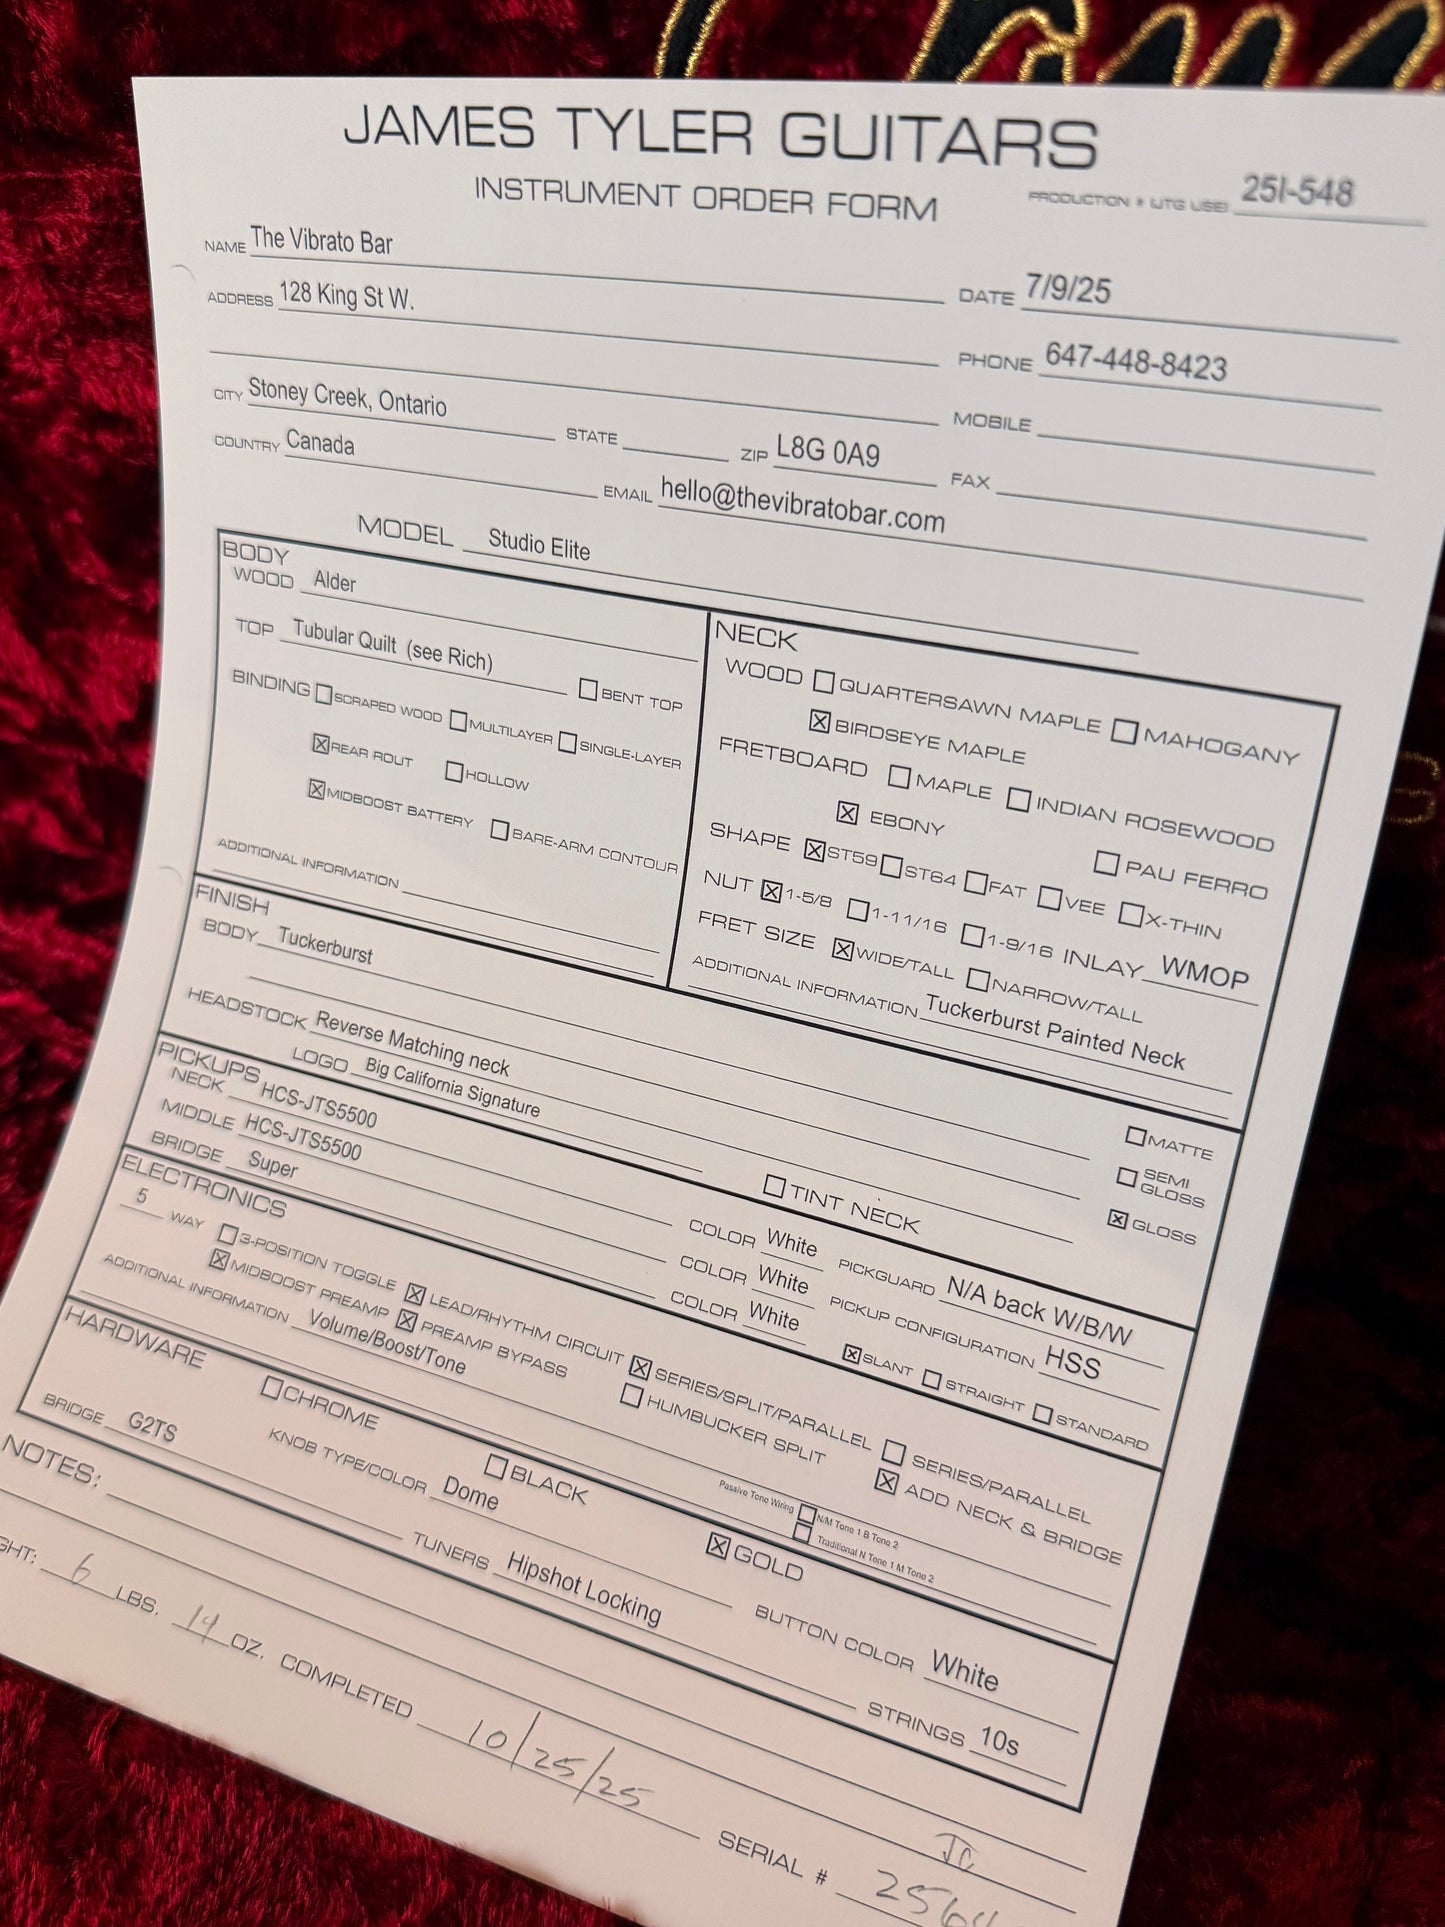 JAMES TYLER GUITARS
INSTRUMENT ORDER FORM
PRODUCTION # (JTG USE) 25I-548
NAME The Vibrato Bar
DATE 7/9/25
ADDRESS 128 King St W.
PHONE 647-448-8423
MOBILE
CITY Stoney Creek, Ontario STATE ZIP L8G 0A9
FAX
COUNTRY Canada EMAIL hello@thevibratobar.com
MODEL Studio Elite
BODY
WOOD Alder
TOP Tubular Quilt (see Rich) ☐ BENT TOP
BINDING ☐ SCRAPED WOOD ☐ MULTILAYER ☐ SINGLE-LAYER
☒ REAR ROUT ☐ HOLLOW
☒ MIDBOOST BATTERY ☐ BARE-ARM CONTOUR
ADDITIONAL INFORMATION
NECK
WOOD ☐ QUARTERSAWN MAPLE ☐ MAHOGANY
☒ BIRDSEYE MAPLE
FRETBOARD ☐ MAPLE ☐ INDIAN ROSEWOOD
☒ EBONY ☐ PAU FERRO
SHAPE ☒ ST59 ☐ ST64 ☐ FAT ☐ VEE ☐ X-THIN
NUT ☒ 1-5/8 ☐ 1-11/16 ☐ 1-9/16 INLAY WMOP
FRET SIZE ☒ WIDE/TALL ☐ NARROW/TALL
ADDITIONAL INFORMATION Tuckerburst Painted Neck
FINISH
BODY Tuckerburst
☐ MATTE
HEADSTOCK Reverse Matching neck
☐ SEMI GLOSS
LOGO Big California Signature ☐ TINT NECK ☒ GLOSS
PICKUPS
NECK HCS-JTS5500 COLOR White PICKGUARD N/A back W/B/W
MIDDLE HCS-JTS5500 COLOR White PICKUP CONFIGURATION HSS
BRIDGE Super COLOR White ☒ SLANT ☐ STRAIGHT ☐ STANDARD
ELECTRONICS
5 WAY ☐ 3-POSITION TOGGLE ☒ LEAD/RHYTHM CIRCUIT ☒ SERIES/SPLIT/PARALLEL ☐ SERIES/PARALLEL
☒ MIDBOOST PREAMP ☒ PREAMP BYPASS ☐ HUMBUCKER SPLIT ☒ ADD NECK & BRIDGE
ADDITIONAL INFORMATION Volume/Boost/Tone
Passive Tone Wiring ☐ N/M Tone 1 B Tone 2
☐ Traditional N Tone 1 M Tone 2
HARDWARE
☐ CHROME ☐ BLACK ☒ GOLD
BRIDGE G2TS KNOB TYPE/COLOR Dome BUTTON COLOR White
TUNERS Hipshot Locking STRINGS 10s
NOTES:
GHT: 6 LBS. 14 OZ. COMPLETED 10/25/25 SERIAL #